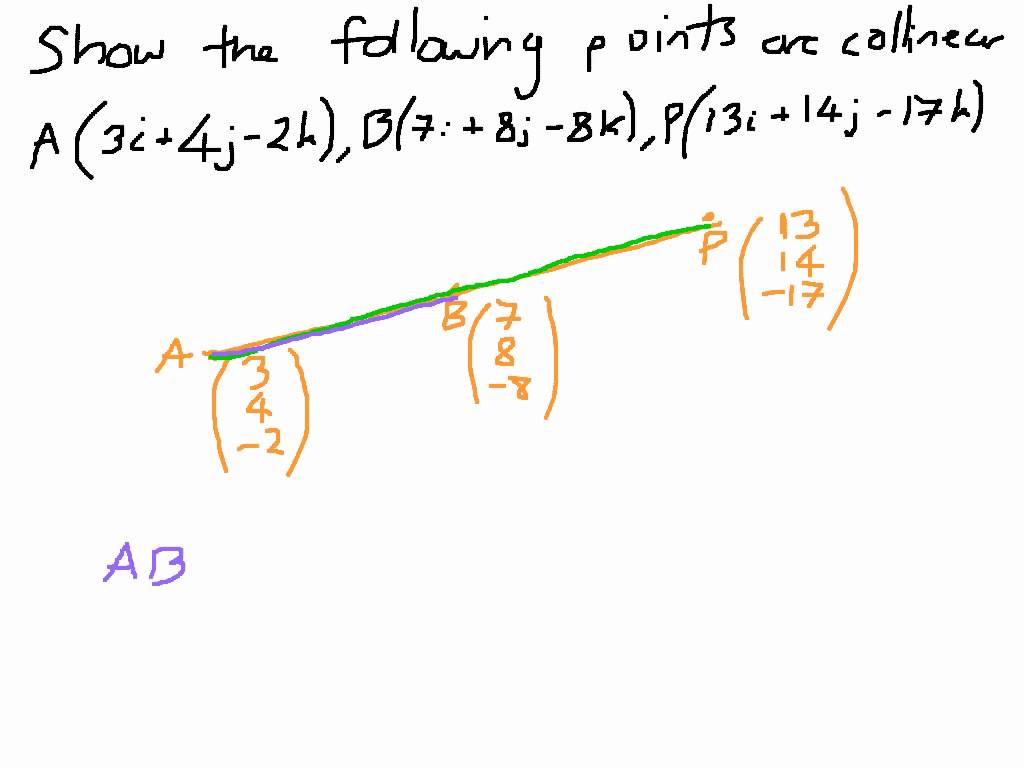 Show the following points are collinear
A(3i+4j-2k), B(7i+8j-8k), P(13i+14j-17k)
P
13
14
-17
B
7
8
-8
A
3
4
-2
AB